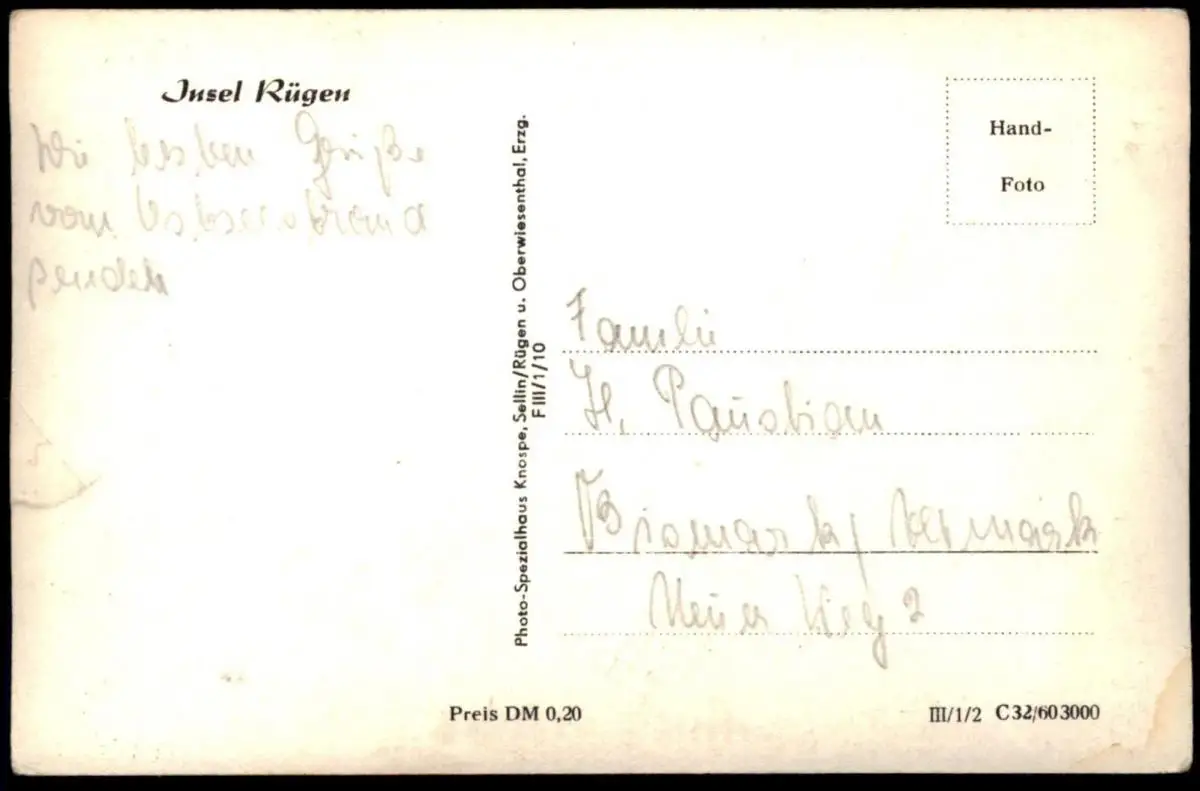 Insel Rügen
Die besten Grüße
vom Ostseestrand
senden
Photo-Spezialhaus Knospe, Sellin/Rügen u. Oberwiesenthal, Erzg.
F III/1/10
Hand-
Foto
Familie
H.
Bismark / Altmark
Neuer Weg 2
Preis DM 0,20
III/1/2 C32/603000